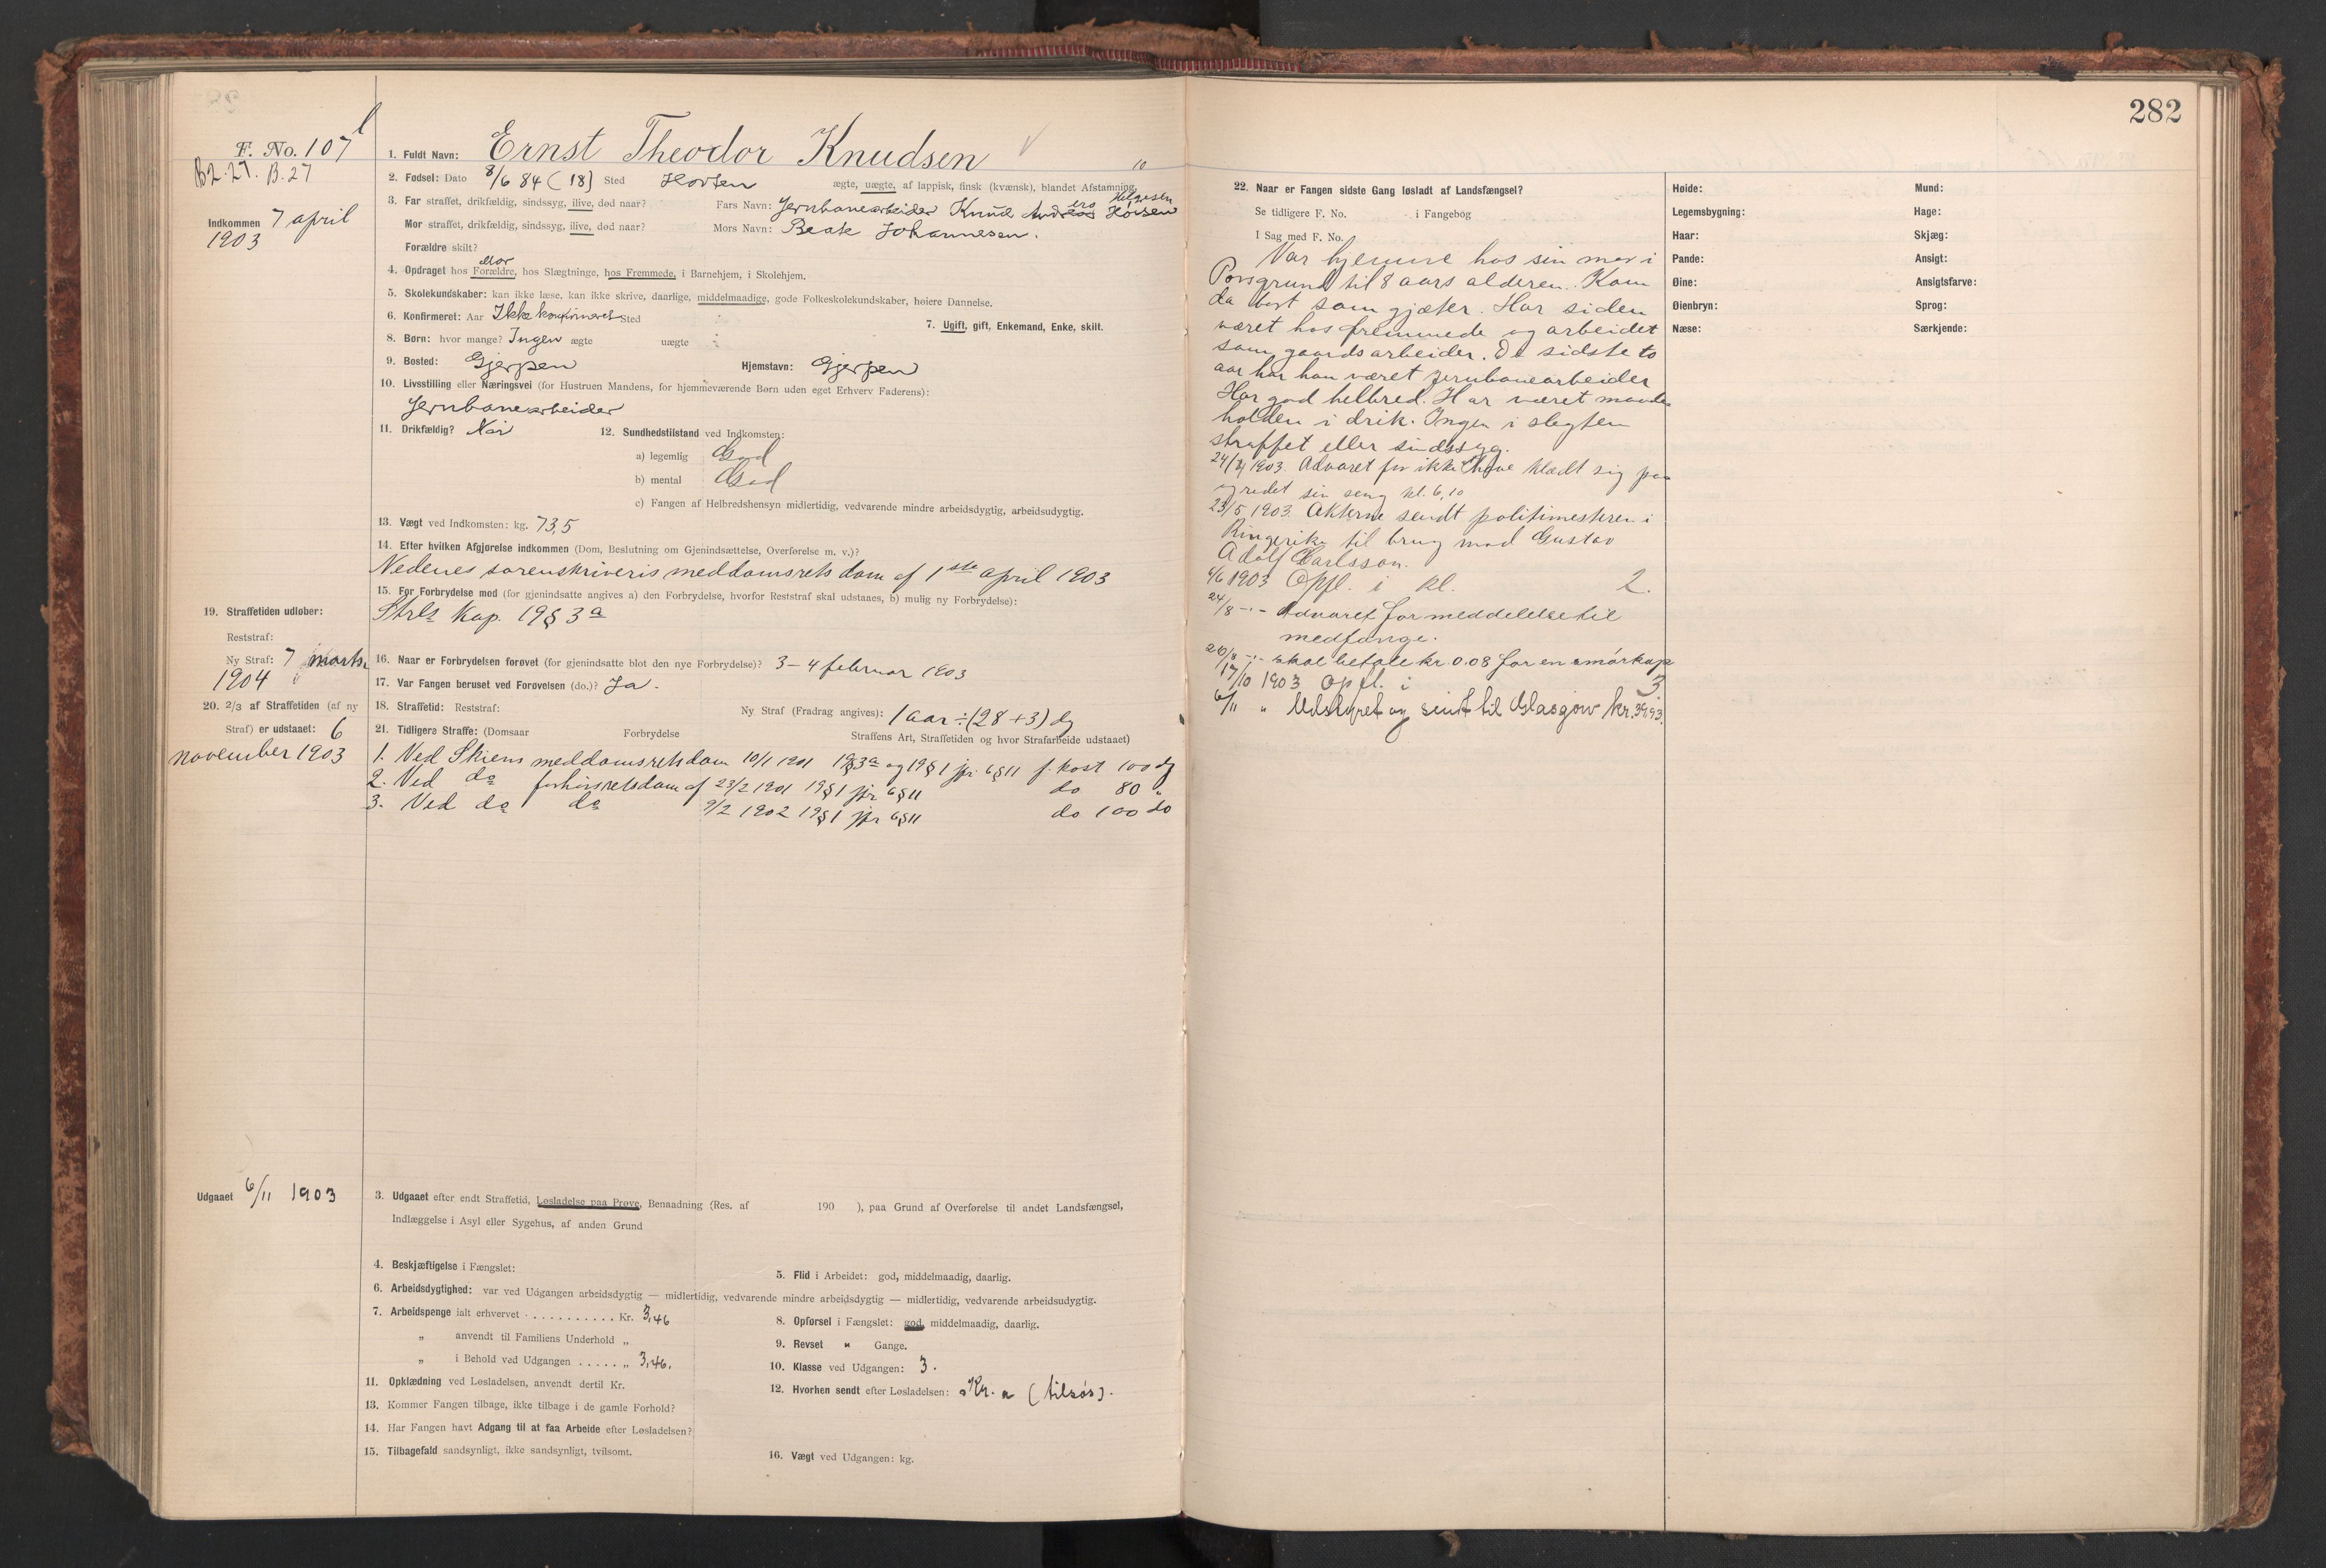 282
F. No. 107
B2.27. B.27
Indkommen 7 april
1903
1. Fuldt Navn: Ernst Theodor Knudsen
10
2. Fødsel: Dato 8/6 84 (18) Sted Horten ægte, uægte, af lappisk, finsk (kvænsk), blandet Afstamning.
3. Far straffet, drikfældig, sindssyg, ilive, død naar? Fars Navn: Jernbanearbeider Knud
Helgesen
Mor straffet, drikfældig, sindssyg, ilive, død naar? Mors Navn: Beate Johannesen.
Forældre skilt?
Mor
4. Opdraget hos Forældre, hos Slægtninge, hos Fremmede, i Barnehjem, i Skolehjem.
5. Skolekundskaber: kan ikke læse, kan ikke skrive, daarlige, middelmaadige, gode Folkeskolekundskaber, høiere Dannelse.
6. Konfirmeret: Aar Ikke konfirmeret Sted 7. Ugift, gift, Enkemand, Enke, skilt.
8. Børn: hvor mange? Ingen ægte uægte
9. Bosted: Gjerpen Hjemstavn: Gjerpen
10. Livsstilling eller Næringsvei (for Hustruen Mandens, for hjemmeværende Børn uden eget Erhverv Faderens):
Jernbanearbeider
11. Drikfældig? Nei 12. Sundhedstilstand ved Indkomsten:
a) legemlig God
b) mental God
c) Fangen af Helbredshensyn midlertidig, vedvarende mindre arbeidsdygtig, arbeidsudygtig.
13. Vægt ved Indkomsten: kg. 73,5
14. Efter hvilken Afgjørelse indkommen (Dom, Beslutning om Gjenindsættelse, Overførelse m. v.)?
Nedenes sorenskriveris meddomsrets dom af 1ste april 1903
15. For Forbrydelse mod (for gjenindsatte angives a) den Forbrydelse, hvorfor Reststraf skal udstaaes, b) mulig ny Forbrydelse):
Strl Kap. 19 § 3 a
19. Straffetiden udløber:
Reststraf:
Ny Straf: 7 marts
1904
16. Naar er Forbrydelsen forøvet (for gjenindsatte blot den nye Forbrydelse)? 3–4 februar 1903
17. Var Fangen beruset ved Forøvelsen (do.)? Ja.
18. Straffetid: Reststraf: Ny Straf (Fradrag angives): 1 aar ÷ (28 + 3) dg
20. 2/3 af Straffetiden (af ny
Straf) er udstaaet: 6
november 1903
21. Tidligere Straffe: (Domsaar Forbrydelse Straffens Art, Straffetiden og hvor Strafarbeide udstaaet)
1. Ved Skiens meddomsrets dom 10/1 1901 19§3a og 19§1 jfr. 6§11 f. kost 100 dg
2. Ved do forhørsretsdom af 23/2 1901 19§1 jfr 6§11 do 80 "
3. Ved do do 9/2 1902 19§1 jfr 6§11 do 100 do
Udgaaet 6/11 1903
3. Udgaaet efter endt Straffetid, Løsladelse paa Prøve, Benaadning (Res. af 190 ), paa Grund af Overførelse til andet Landsfængsel,
Indlæggelse i Asyl eller Sygehus, af anden Grund
4. Beskjæftigelse i Fængslet:
5. Flid i Arbeidet: god, middelmaadig, daarlig.
6. Arbeidsdygtighed: var ved Udgangen arbeidsdygtig — midlertidig, vedvarende mindre arbeidsdygtig — midlertidig, vedvarende arbeidsudygtig.
7. Arbeidspenge ialt erhvervet ........... Kr. 3,46
8. Opførsel i Fængslet: god, middelmaadig, daarlig.
„ anvendt til Familiens Underhold „
9. Revset " Gange.
„ i Behold ved Udgangen ..... „ 3,46.
10. Klasse ved Udgangen: 3.
11. Opklædning ved Løsladelsen, anvendt dertil Kr.
12. Hvorhen sendt efter Løsladelsen: Kr. a (tilsøs).
13. Kommer Fangen tilbage, ikke tilbage i de gamle Forhold?
14. Har Fangen havt Adgang til at faa Arbeide efter Løsladelsen?
15. Tilbagefald sandsynligt, ikke sandsynligt, tvilsomt.
16. Vægt ved Udgangen: kg.
22. Naar er Fangen sidste Gang løsladt af Landsfængsel?
Se tidligere F. No. i Fangebog
I Sag med F. No.
Var hjemme hos sin mor i
Porsgrund til 8 aars alderen. Kom
da bort som gjæter. Har siden
været hos fremmede og arbeidet
som gaardsarbeider. De sidste to
aar har han været jernbanearbeider
Har god helbred. Har været maade
holden i drik. Ingen i slegten
straffet eller sindssyg.
24/4 1903. Advaret for ikke have klædt sig paa
og redet sin seng kl. 6,10
23/5 1903. Akterne sendt politimesteren i
Ringerike til brug mod Gustav
Adolf Carlsson.
6/6 1903 Opfl. i kl. 2.
24/8 -.- Advaret for meddelelse til
medfange.
26/8 -.- skal betale kr 0.08 for en smørkop
17/10 1903 Opfl. i 3
6/11 " Udstyret og sendt til Glasgow kr. 39,93.
Høide:
Legemsbygning:
Haar:
Pande:
Øine:
Øienbryn:
Næse:
Mund:
Hage:
Skjæg:
Ansigt:
Ansigtsfarve:
Sprog:
Særkjende: